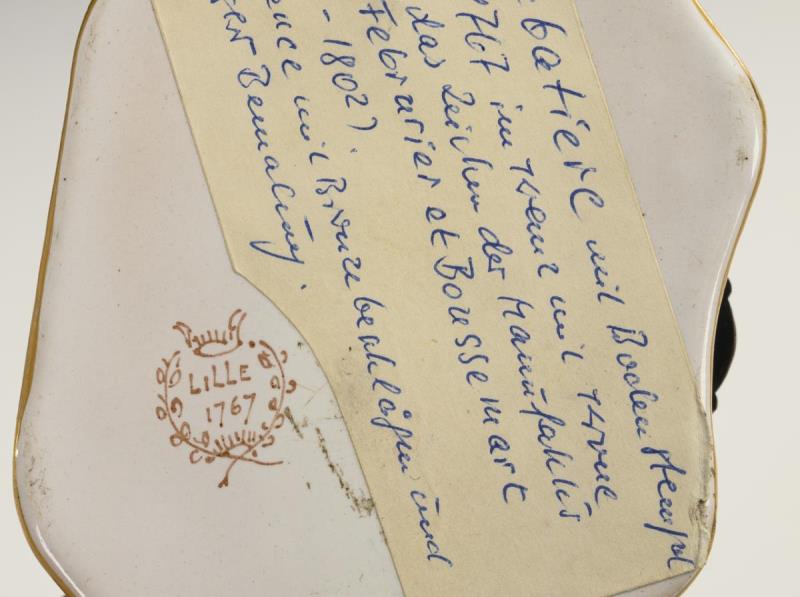 batiere mit Bodenstempel
1767 im Kranz mit Krone
das Zeichen der Manufaktur
Febrvrier et Boussemart
- 1802).
ence mit Bronzebeschlägen und
ger Bemalung.
LILLE
1767